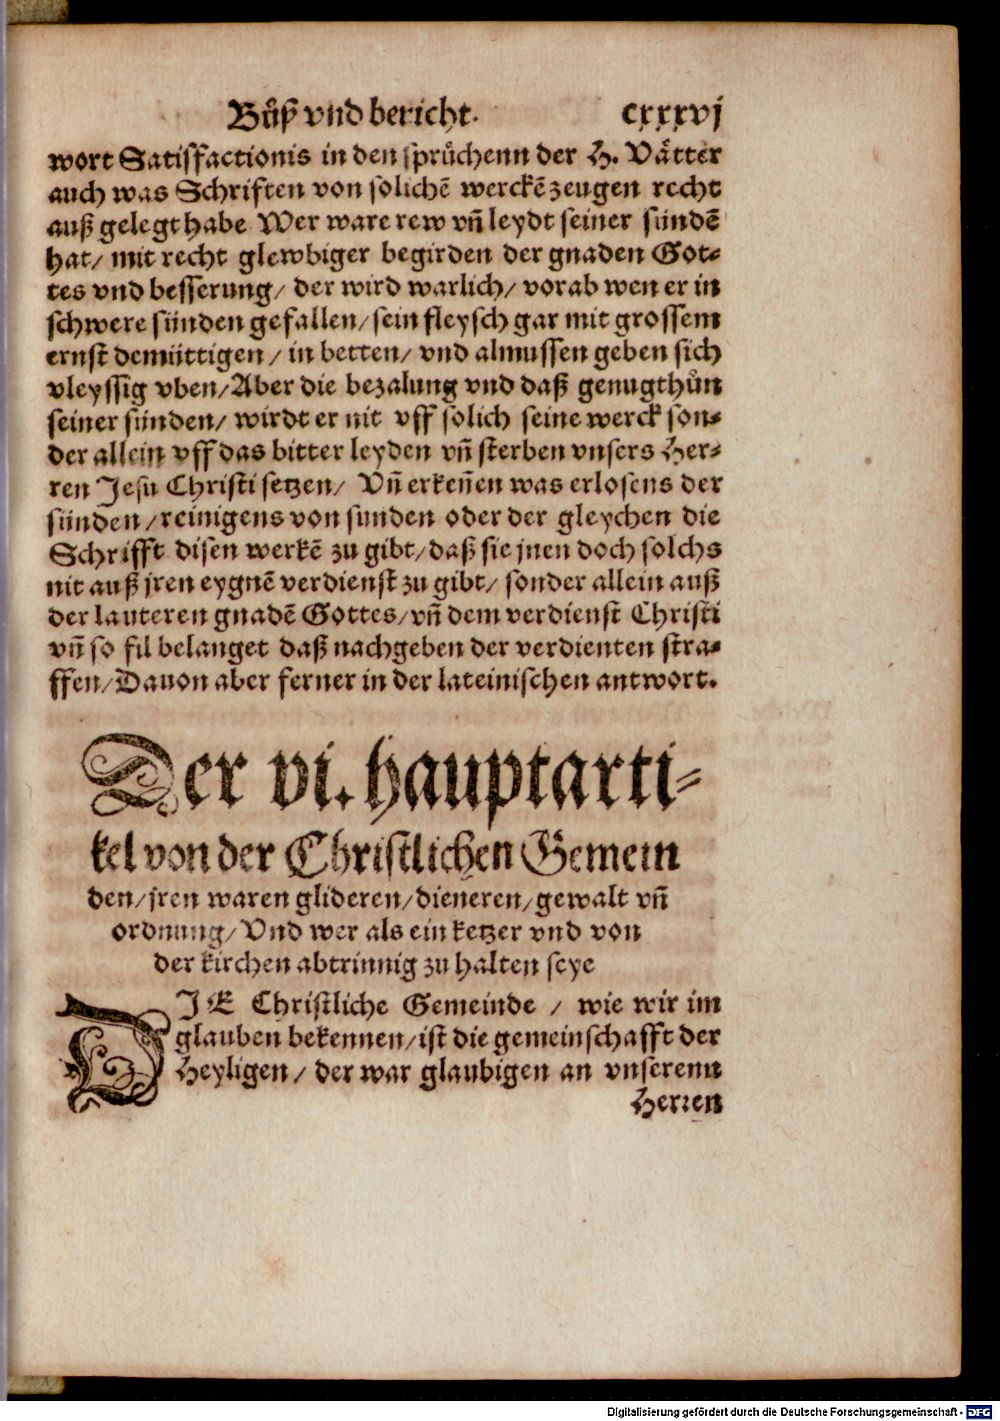 Bůß vnd bericht. cxxxvj
wort Satisfactionis in den sprüchenn der H. Vätter
auch was Schriften von solichē werckē zeugen recht
auß gelegt habe Wer ware rew vñ leydt seiner sündē
hat/ mit recht glewbiger begirden der gnaden Got-
tes vnd besserung/ der wird warlich/ vorab wen er in
schwere sünden gefallen/ sein fleysch gar mit grossem
ernst demüttigen/ in betten/ vnd almussen geben sich
vleyssig vben/ Aber die bezalung vnd daß genugthůn
seiner sünden/ wirdt er nit vff solich seine werck son-
der allein vff das bitter leyden vñ sterben vnsers Her-
ren Jesu Christi setzen/ Vñ erkeñen was erlosens der
sünden/ reinigens von sunden oder der gleychen die
Schrifft disen werkē zu gibt/ daß sie jnen doch solchs
nit auß jren eygnē verdienst zu gibt/ sonder allein auß
der lauteren gnadē Gottes/ vñ dem verdienst Christi
vñ so fil belanget daß nachgeben der verdienten stra-
ffen/ Dauon aber ferner in der lateinischen antwort.
Der vi. hauptarti-
kel von der Christlichen Gemein
den/ jren waren glideren/ dieneren/ gewalt vñ
ordnung/ Vnd wer als ein ketzer vnd von
der kirchen abtrinnig zu halten seye
DJE Christliche Gemeinde / wie wir im
glauben bekennen/ ist die gemeinschafft der
Heyligen/ der war glaubigen an vnserenn
Herren
Digitalisierung gefördert durch die Deutsche Forschungsgemeinschaft - DFG